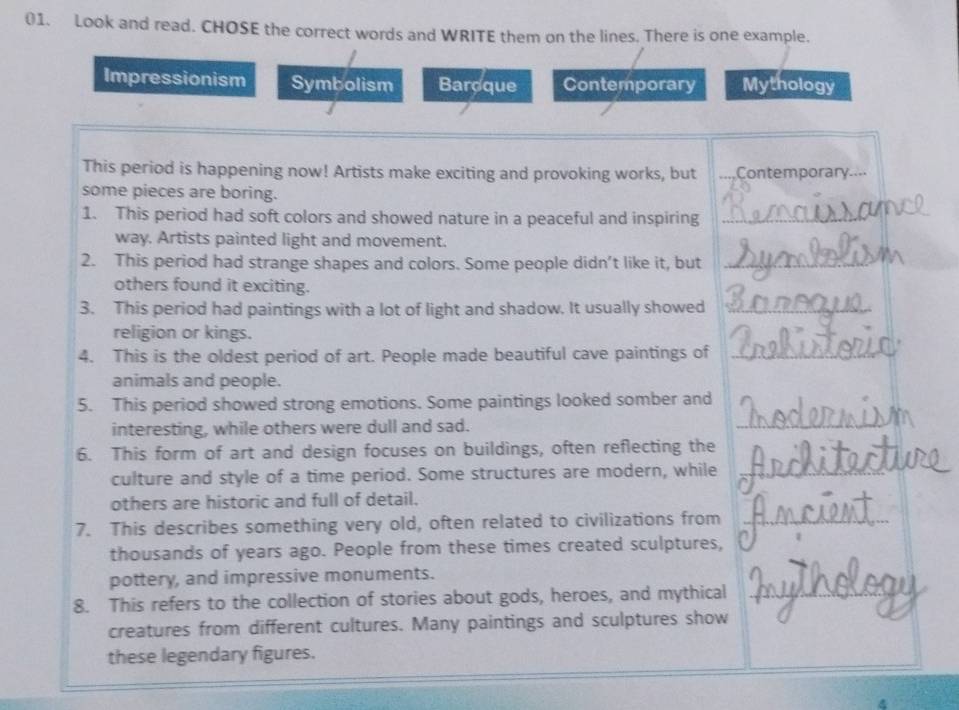 01. Look and read. CHOSE the correct words and WRITE them on the lines. There is one example.
Impressionism Symbolism Baroque Contemporary Mythology
This period is happening now! Artists make exciting and provoking works, but ....Contemporary....
some pieces are boring.
1. This period had soft colors and showed nature in a peaceful and inspiring Renaissance
way. Artists painted light and movement.
2. This period had strange shapes and colors. Some people didn't like it, but Symbolism
others found it exciting.
3. This period had paintings with a lot of light and shadow. It usually showed Baroque
religion or kings.
4. This is the oldest period of art. People made beautiful cave paintings of Prehistoric
animals and people.
5. This period showed strong emotions. Some paintings looked somber and Modernism
interesting, while others were dull and sad.
6. This form of art and design focuses on buildings, often reflecting the Architecture
culture and style of a time period. Some structures are modern, while
others are historic and full of detail.
7. This describes something very old, often related to civilizations from Ancient
thousands of years ago. People from these times created sculptures,
pottery, and impressive monuments.
8. This refers to the collection of stories about gods, heroes, and mythical Mythology
creatures from different cultures. Many paintings and sculptures show
these legendary figures.
4